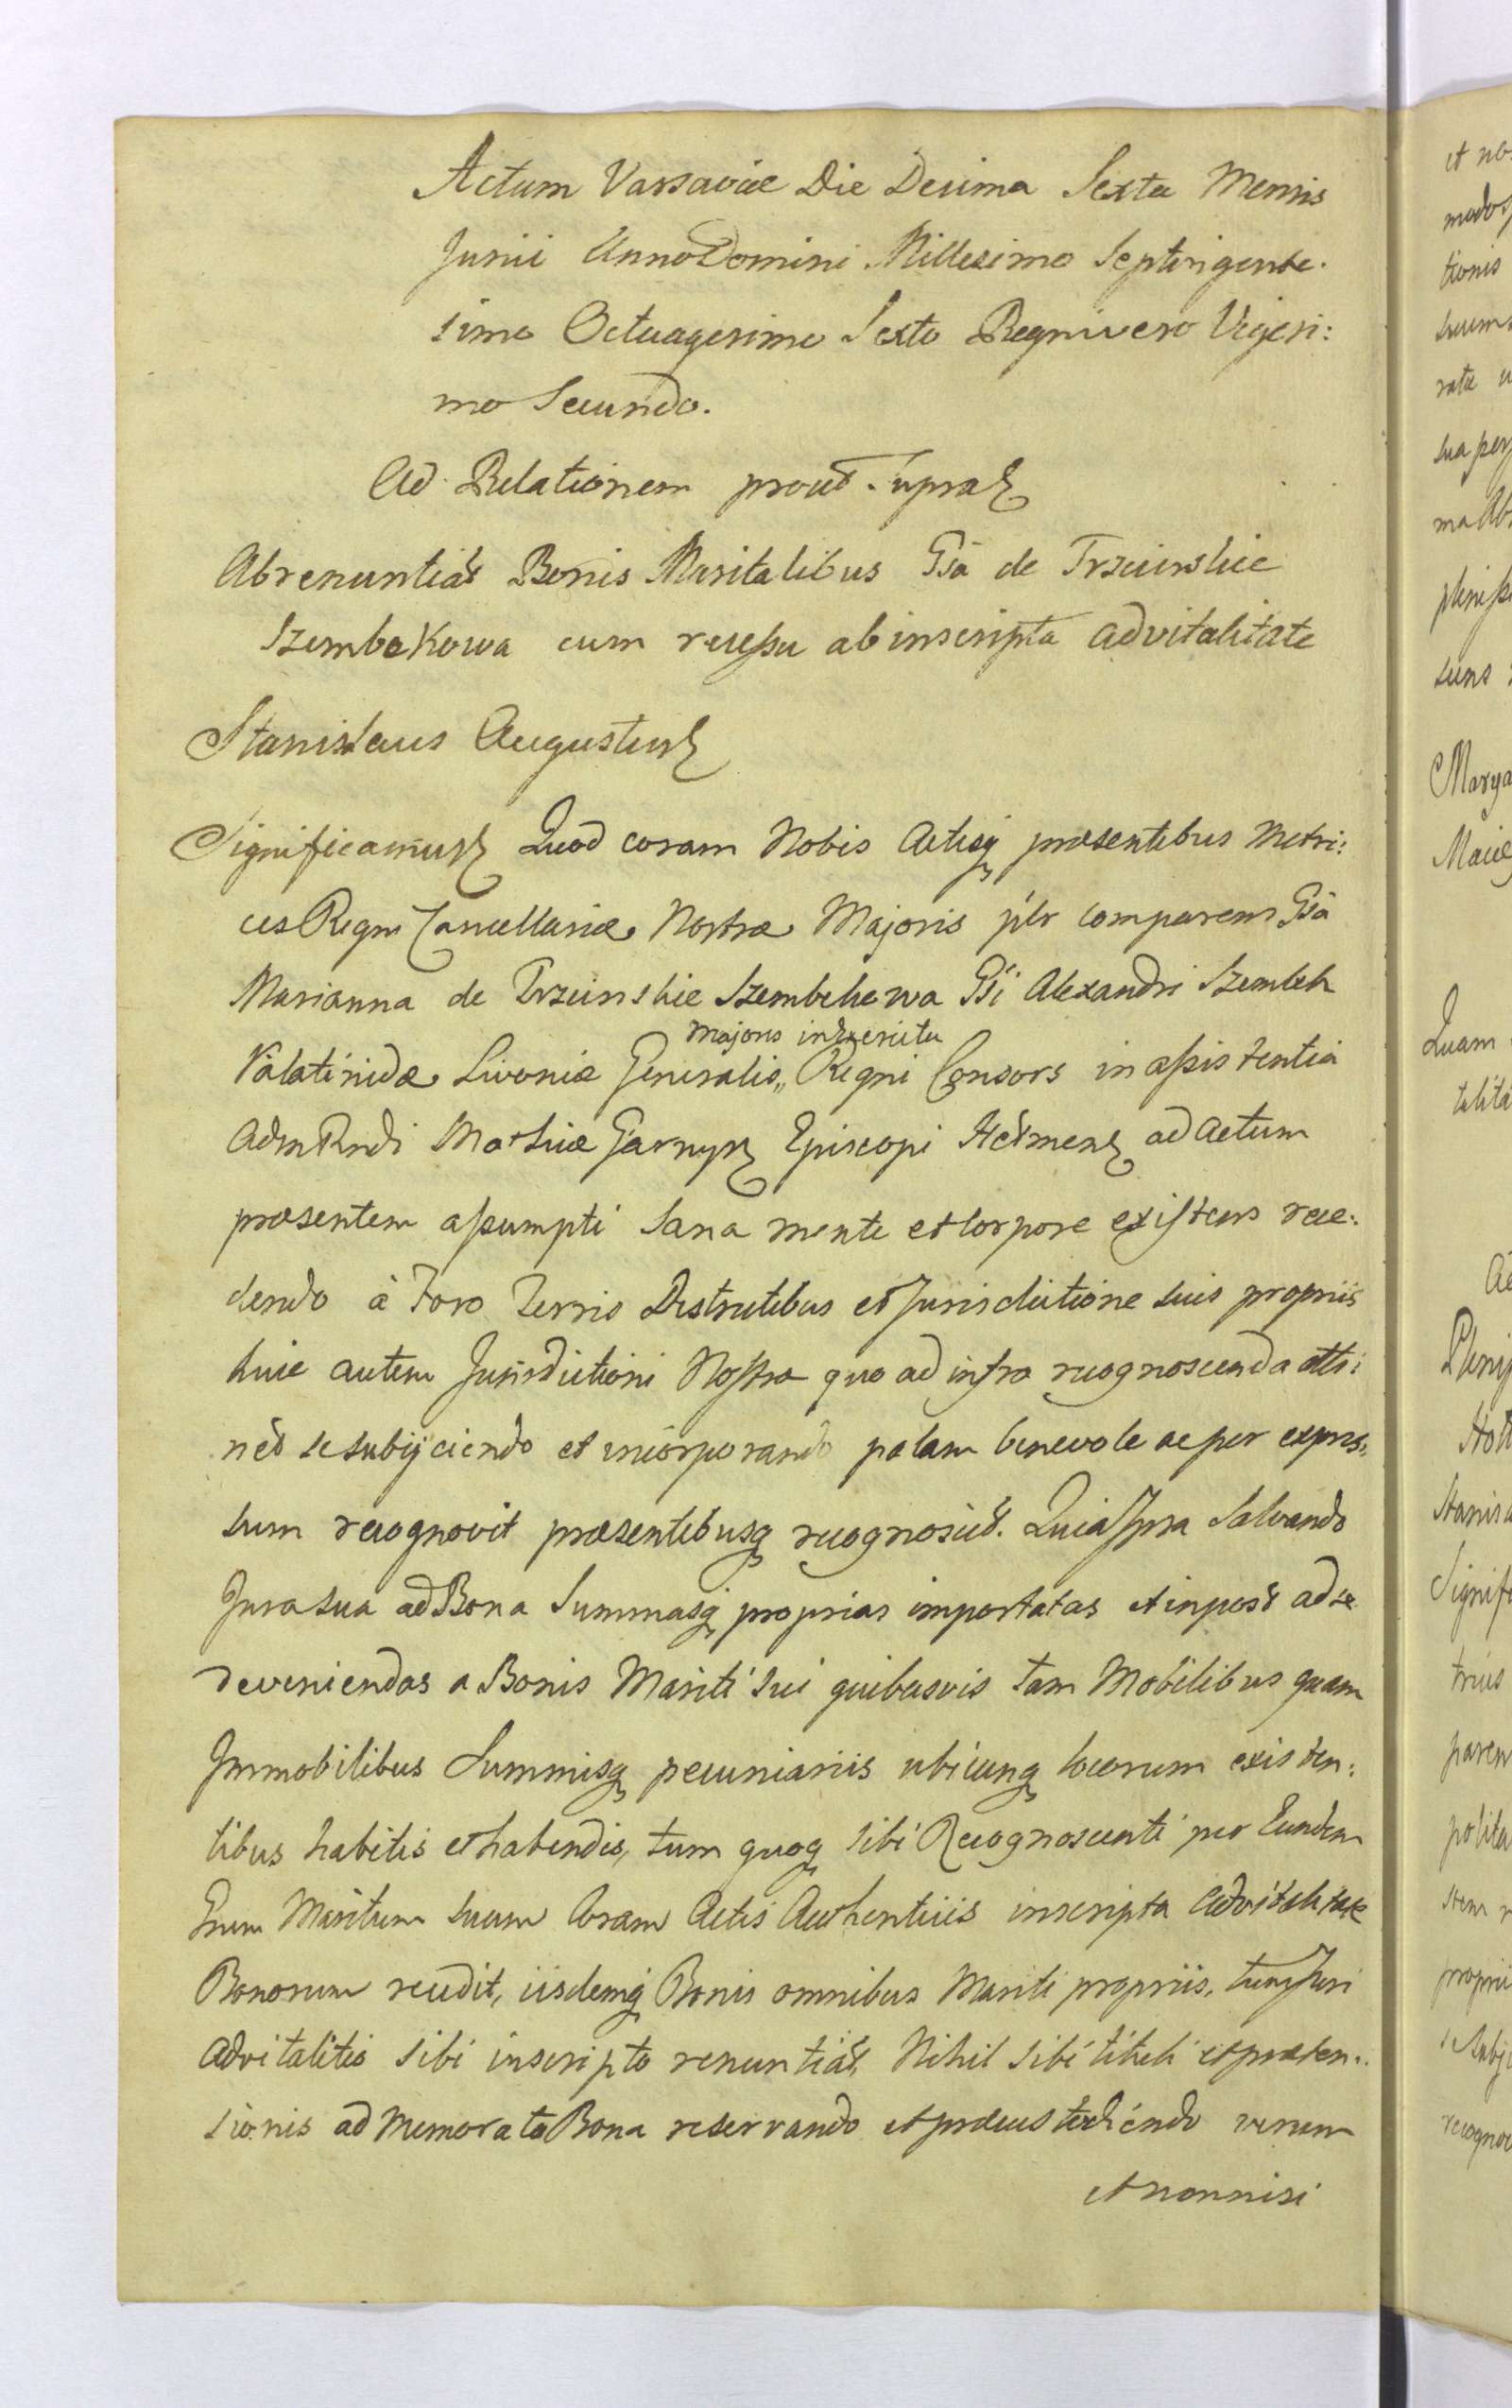 Actum Varsaviæ Die Decima Sexta Mensis
Junii Anno Domini Millesimo Septingente.
simo Octuagesimo Sexto Regni vero Vigesi:
mo Secundo.
Ad Relationem prout supra
Abrenuntiat Bonis Maritalibus Gsa de Trzcinskie
Szembekowa cum recessu ab inscripta advitalitate
Stanislaus Augustus
Significamus Quod coram Nobis Actisq præsentibus Metri:
ces Regni Cancellariæ Nostræ Majoris plr comparens Gsa
Marianna de Trzcinskie Szembekowa Gsi Alexandri Szembek
Majoris in Exercitu
Palatinidæ Livoniæ Generalis,, Regni Consors in assistentia
Adm Rndi Mathiæ Garnysz Episcopi Helmen ad Actum
præsentem assumpti Sana mente et Corpore existens rece:
dendo à Foro Terris Districtibus et Jurisdictione suis propriis
huic autem Jurisdictioni Nostræ quo ad infra recognoscenda atti:
net se subijciendo et incorporando palam benevole ac per expres:
sum recognovit præsentibusq recognoscit. Quia Ipsa Salvando
Jura sua ad Bona Summasq proprias importatas et in post ad se
deveniendas a Bonis Mariti sui quibusvis tam Mobilibus quam
Immobilibus Summisq pecuniariis ubicunq locorum existen:
tibus habitis et habendis, tum quoq sibi Recognoscenti per Eundem
Gnum Maritum suum Coram Actis Authenticis inscripta Advitalitate
Bonorum recedit, iisdemq Bonis omnibus Mariti propriis, tum Juri
advitalitio sibi inscripto renuntiat, Nihil sibi tituli et præten:
sionis ad Memorata Bona reservando et præcustodiendo verum
et nonnisi
et no
modos
tionis
suum
ratæ
sua per
ma Ab
pleniss
suns
Marya
Maiæ
Quam
talita
Ac
Plenip
Hott
Stanis
Signifi
trius
paren
polita
stem
proprii
subj
recogno